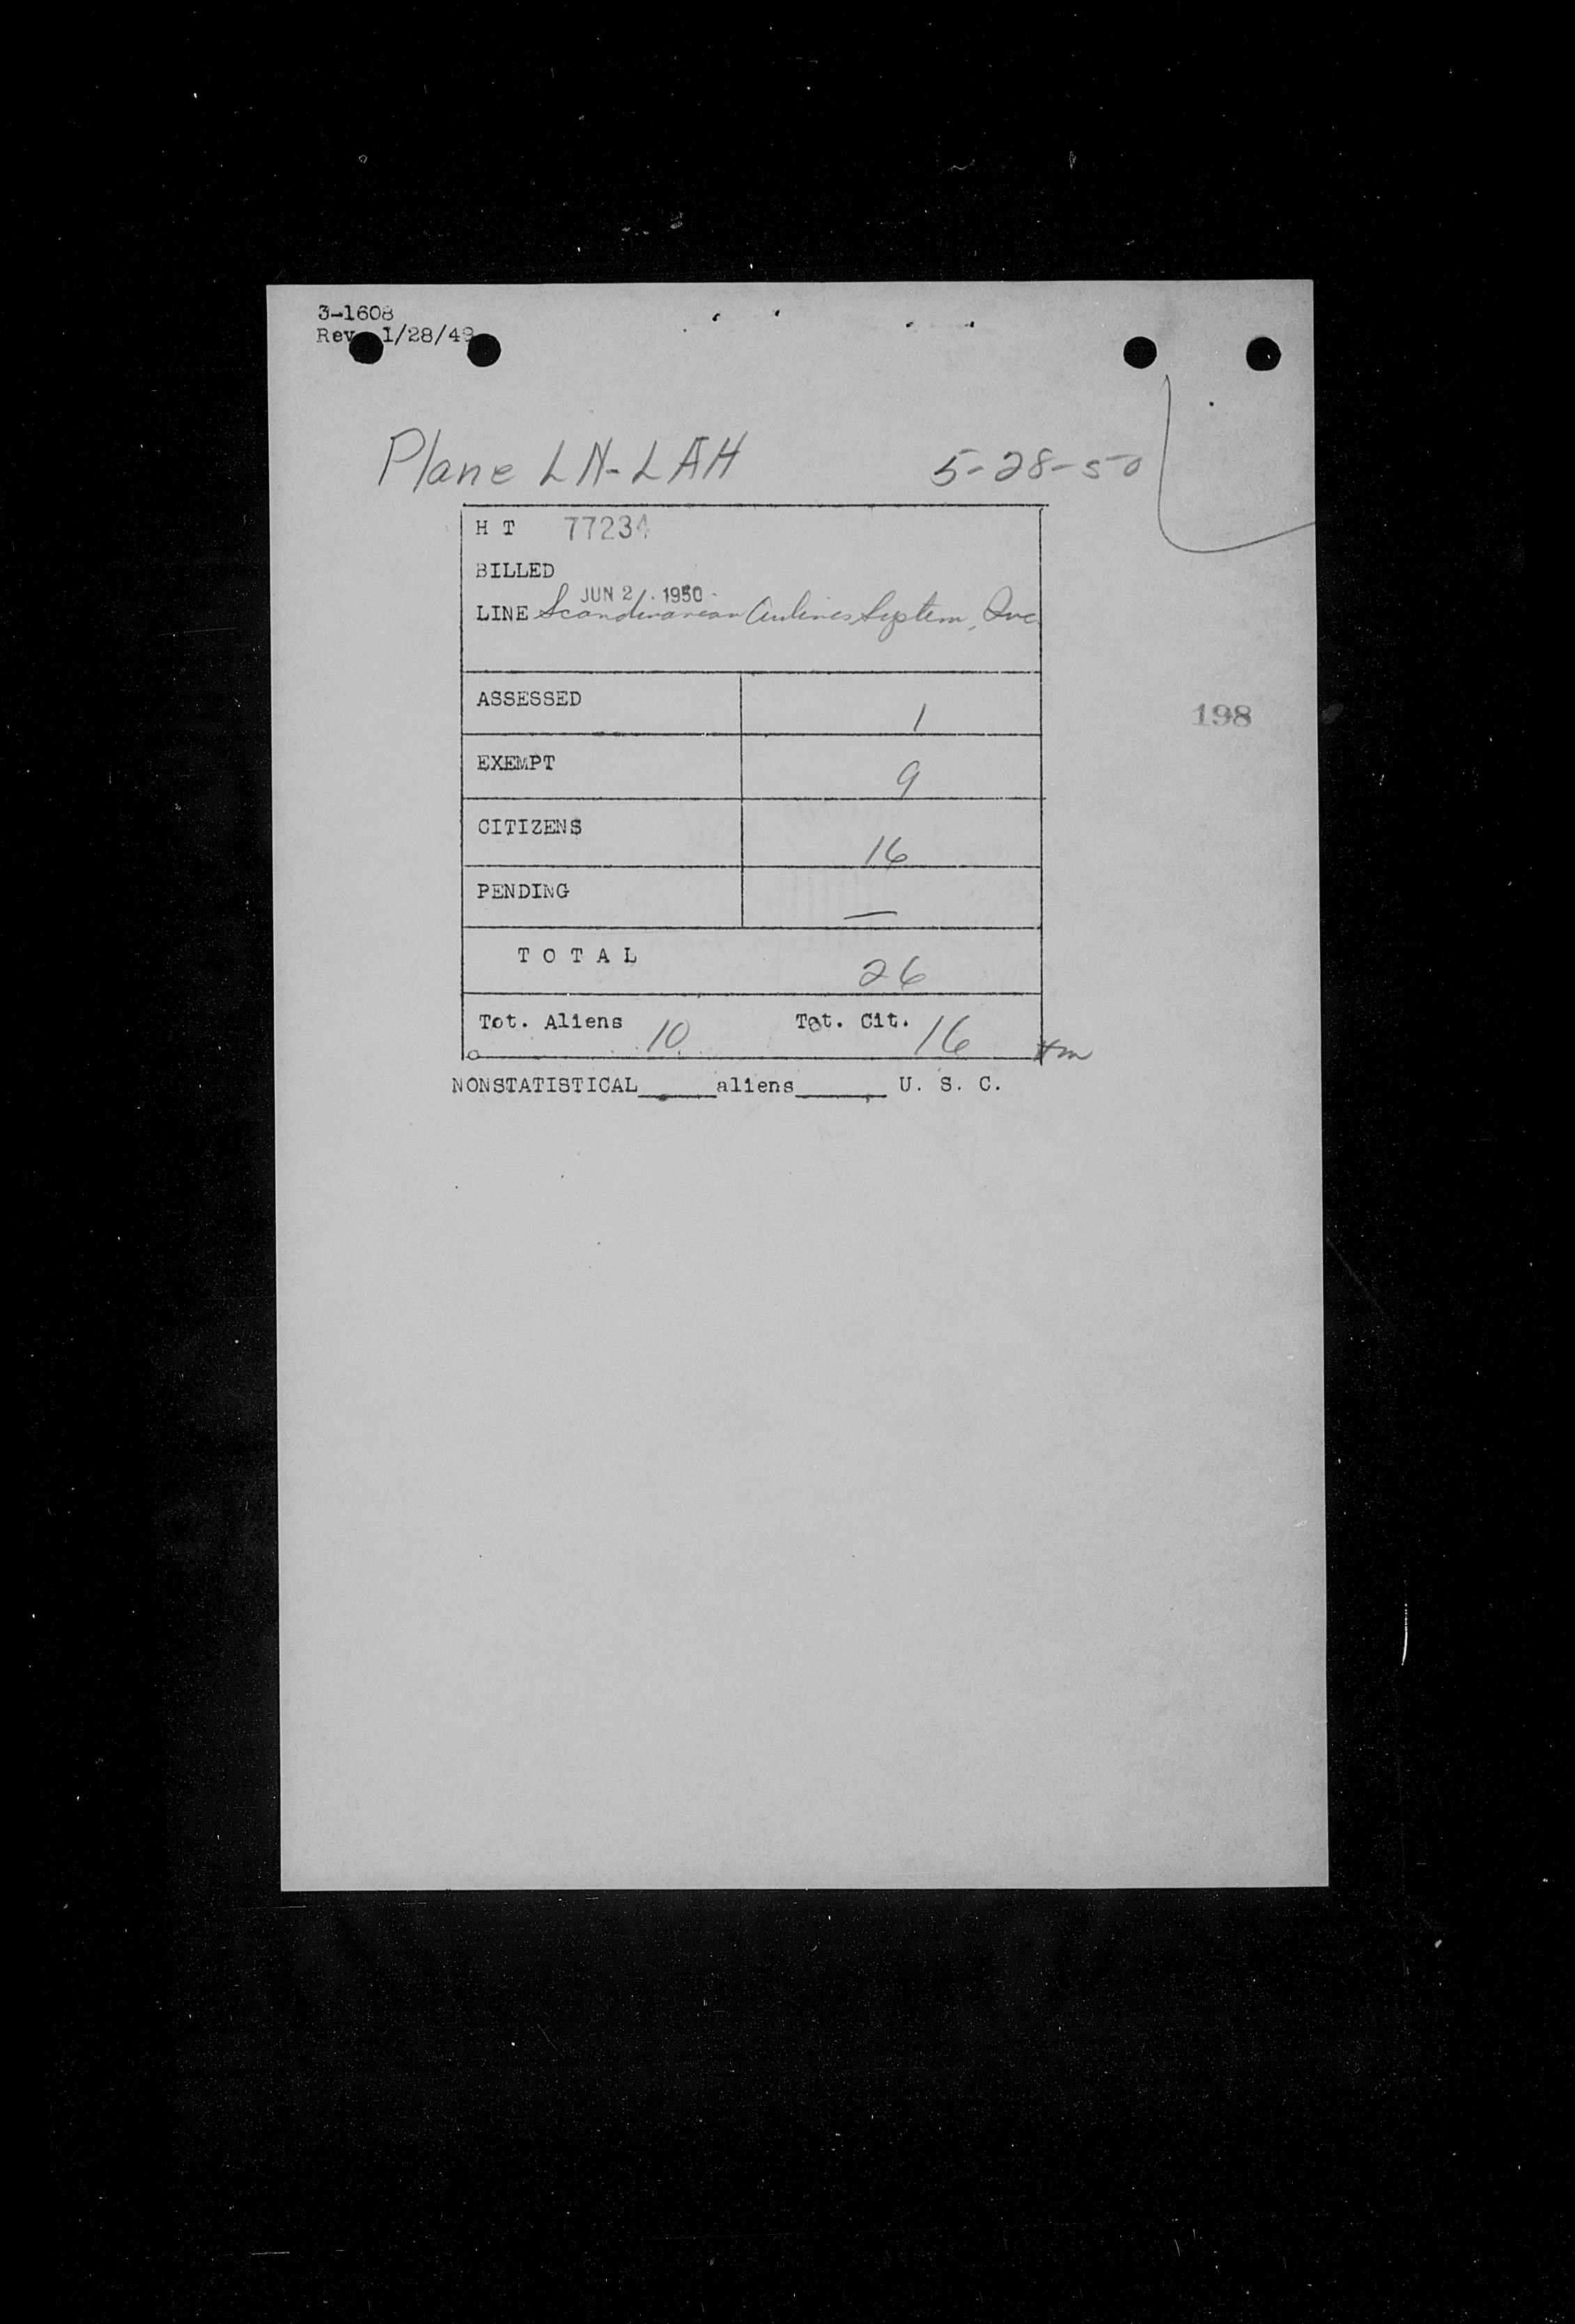 3-1608
Rev. 1/28/49
Plane LN-LAH 5-28-50
H T 77234
BILLED
JUN 21 1950
LINE Scandinavian Airlines System, Inc.
ASSESSED 1
198
EXEMPT 9
CITIZENS 16
PENDING —
T O T A L 26
Tot. Aliens 10 Tot. Cit. 16
NONSTATISTICAL_____aliens______ U. S. C.